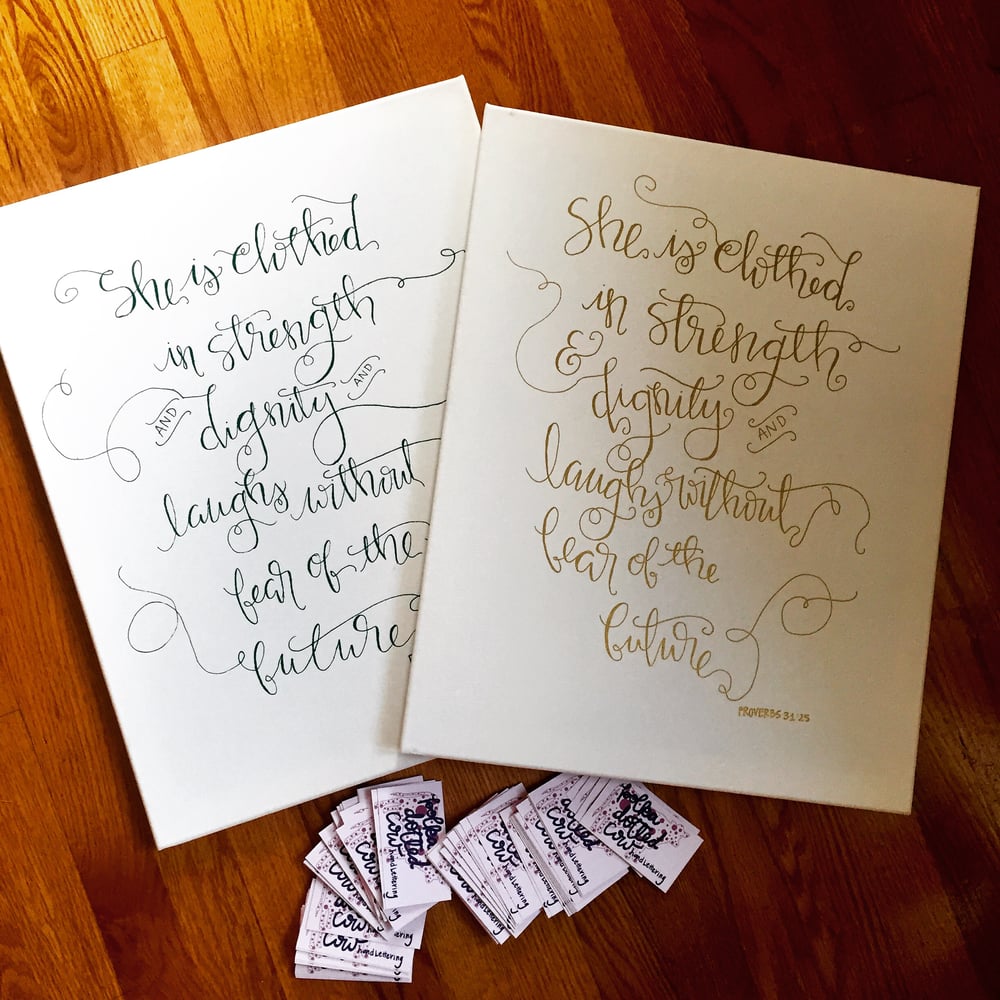 She is clothed
in strength
AND dignity AND
laughs without
fear of the
future
She is clothed
in strength
& dignity AND
laughs without
fear of the
future
PROVERBS 31:25
polka
dotted
cow
hand lettering
dotted
cow
hand lettering
cow
hand lettering